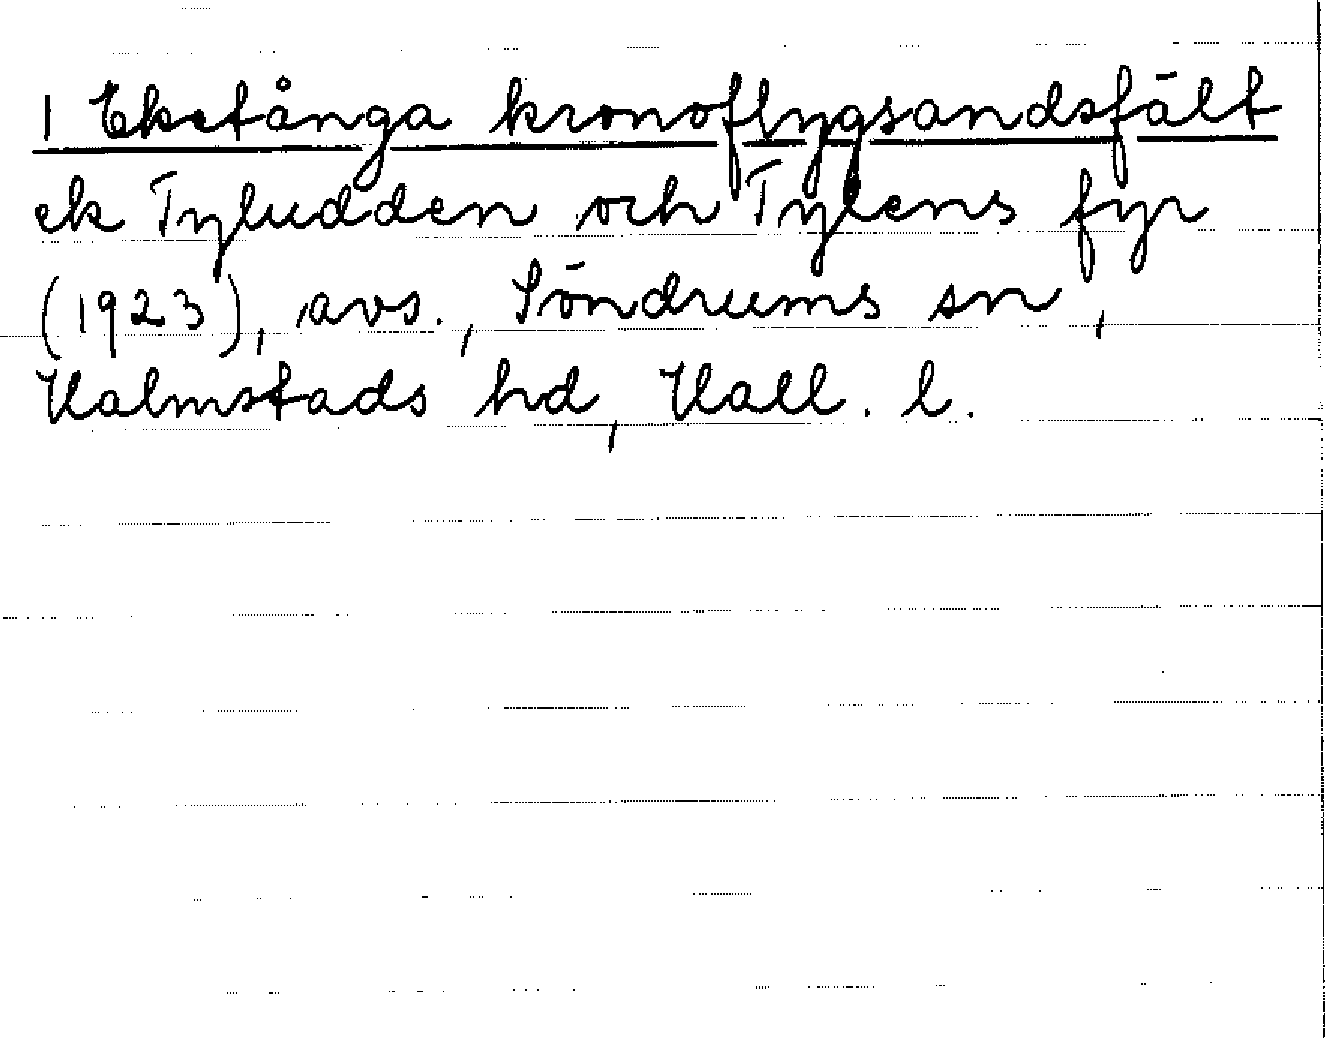 1 Ekstånga kronoflygsandsfält
ek Tyludden och Tylens fyr
(1923), avs., Söndrums sn,
Halmstads hd, Hall. l.